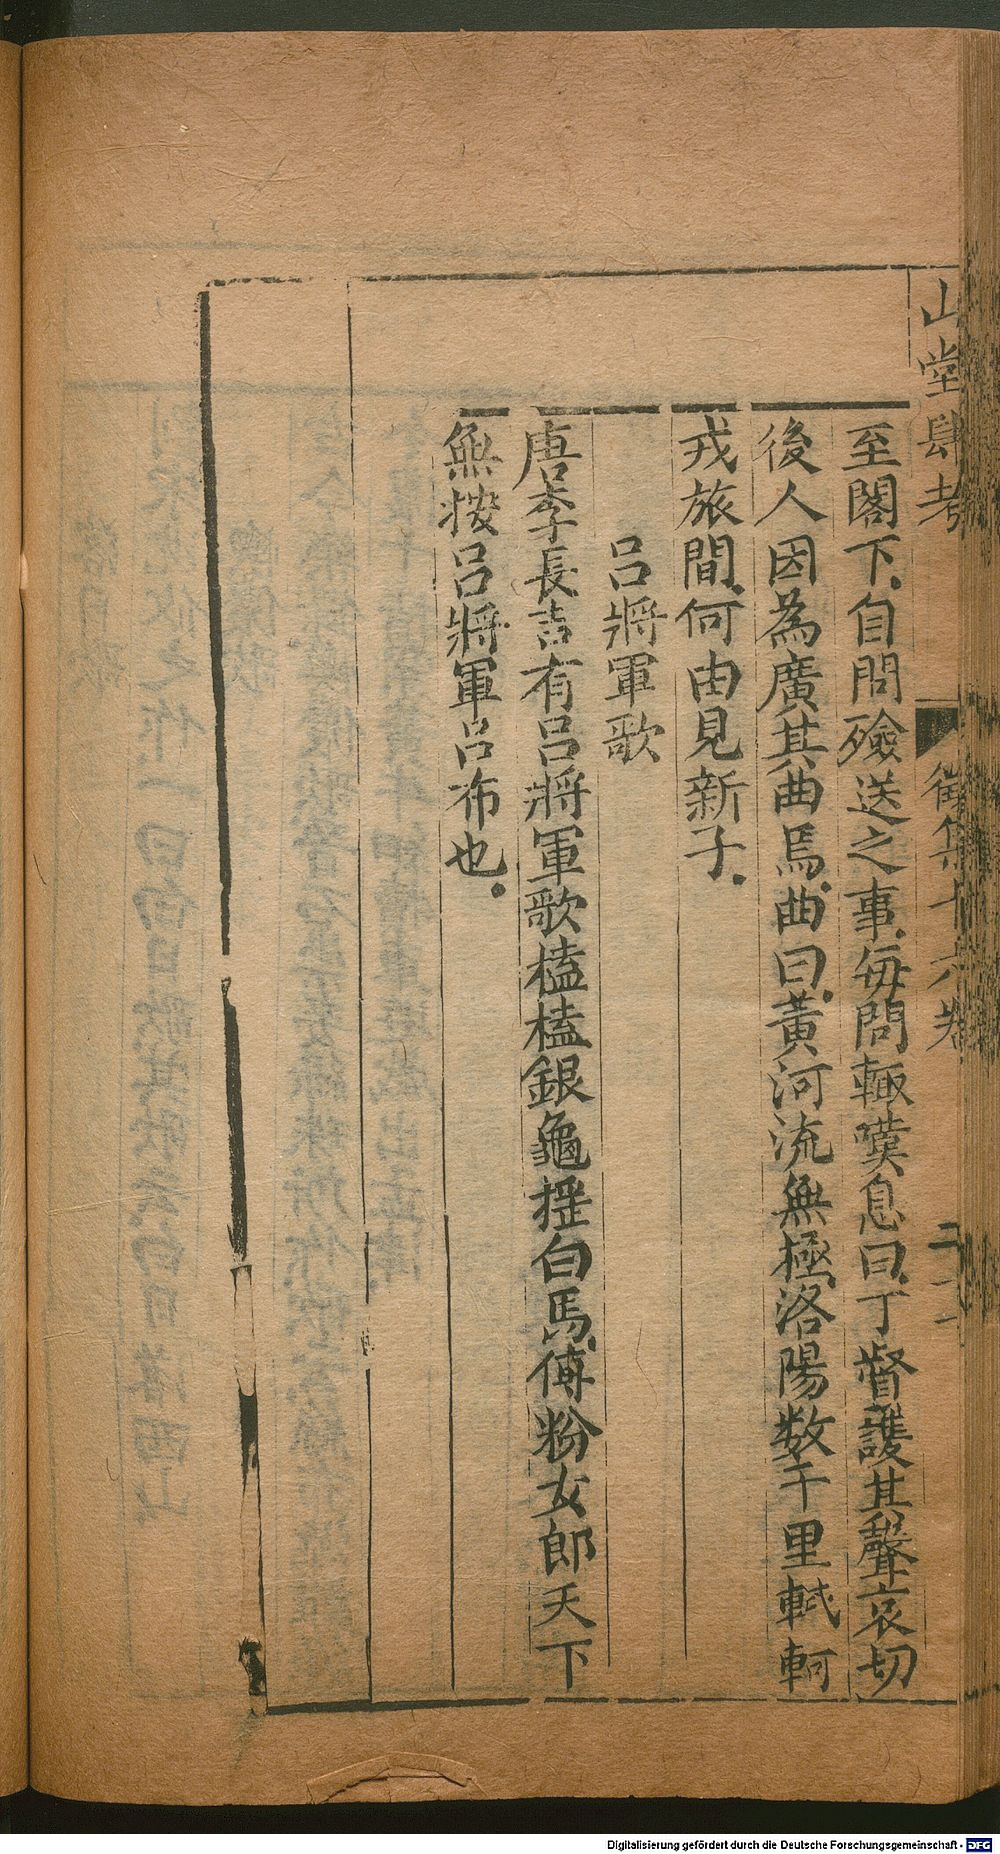 山堂肆考
徵集十六卷
二十一
至閣下自問殮送之事每問輙嘆息曰丁督護其聲哀切
後人因為廣其曲焉曲曰黃河流無極洛陽数千里轗軻
戎旅間何由見新子
呂將軍歌
唐李長吉有呂將軍歌榼榼銀龜揺白馬傅粉女郎天下
無按呂將軍呂布也
Digitalisierung gefördert durch die Deutsche Forschungsgemeinschaft - DFG